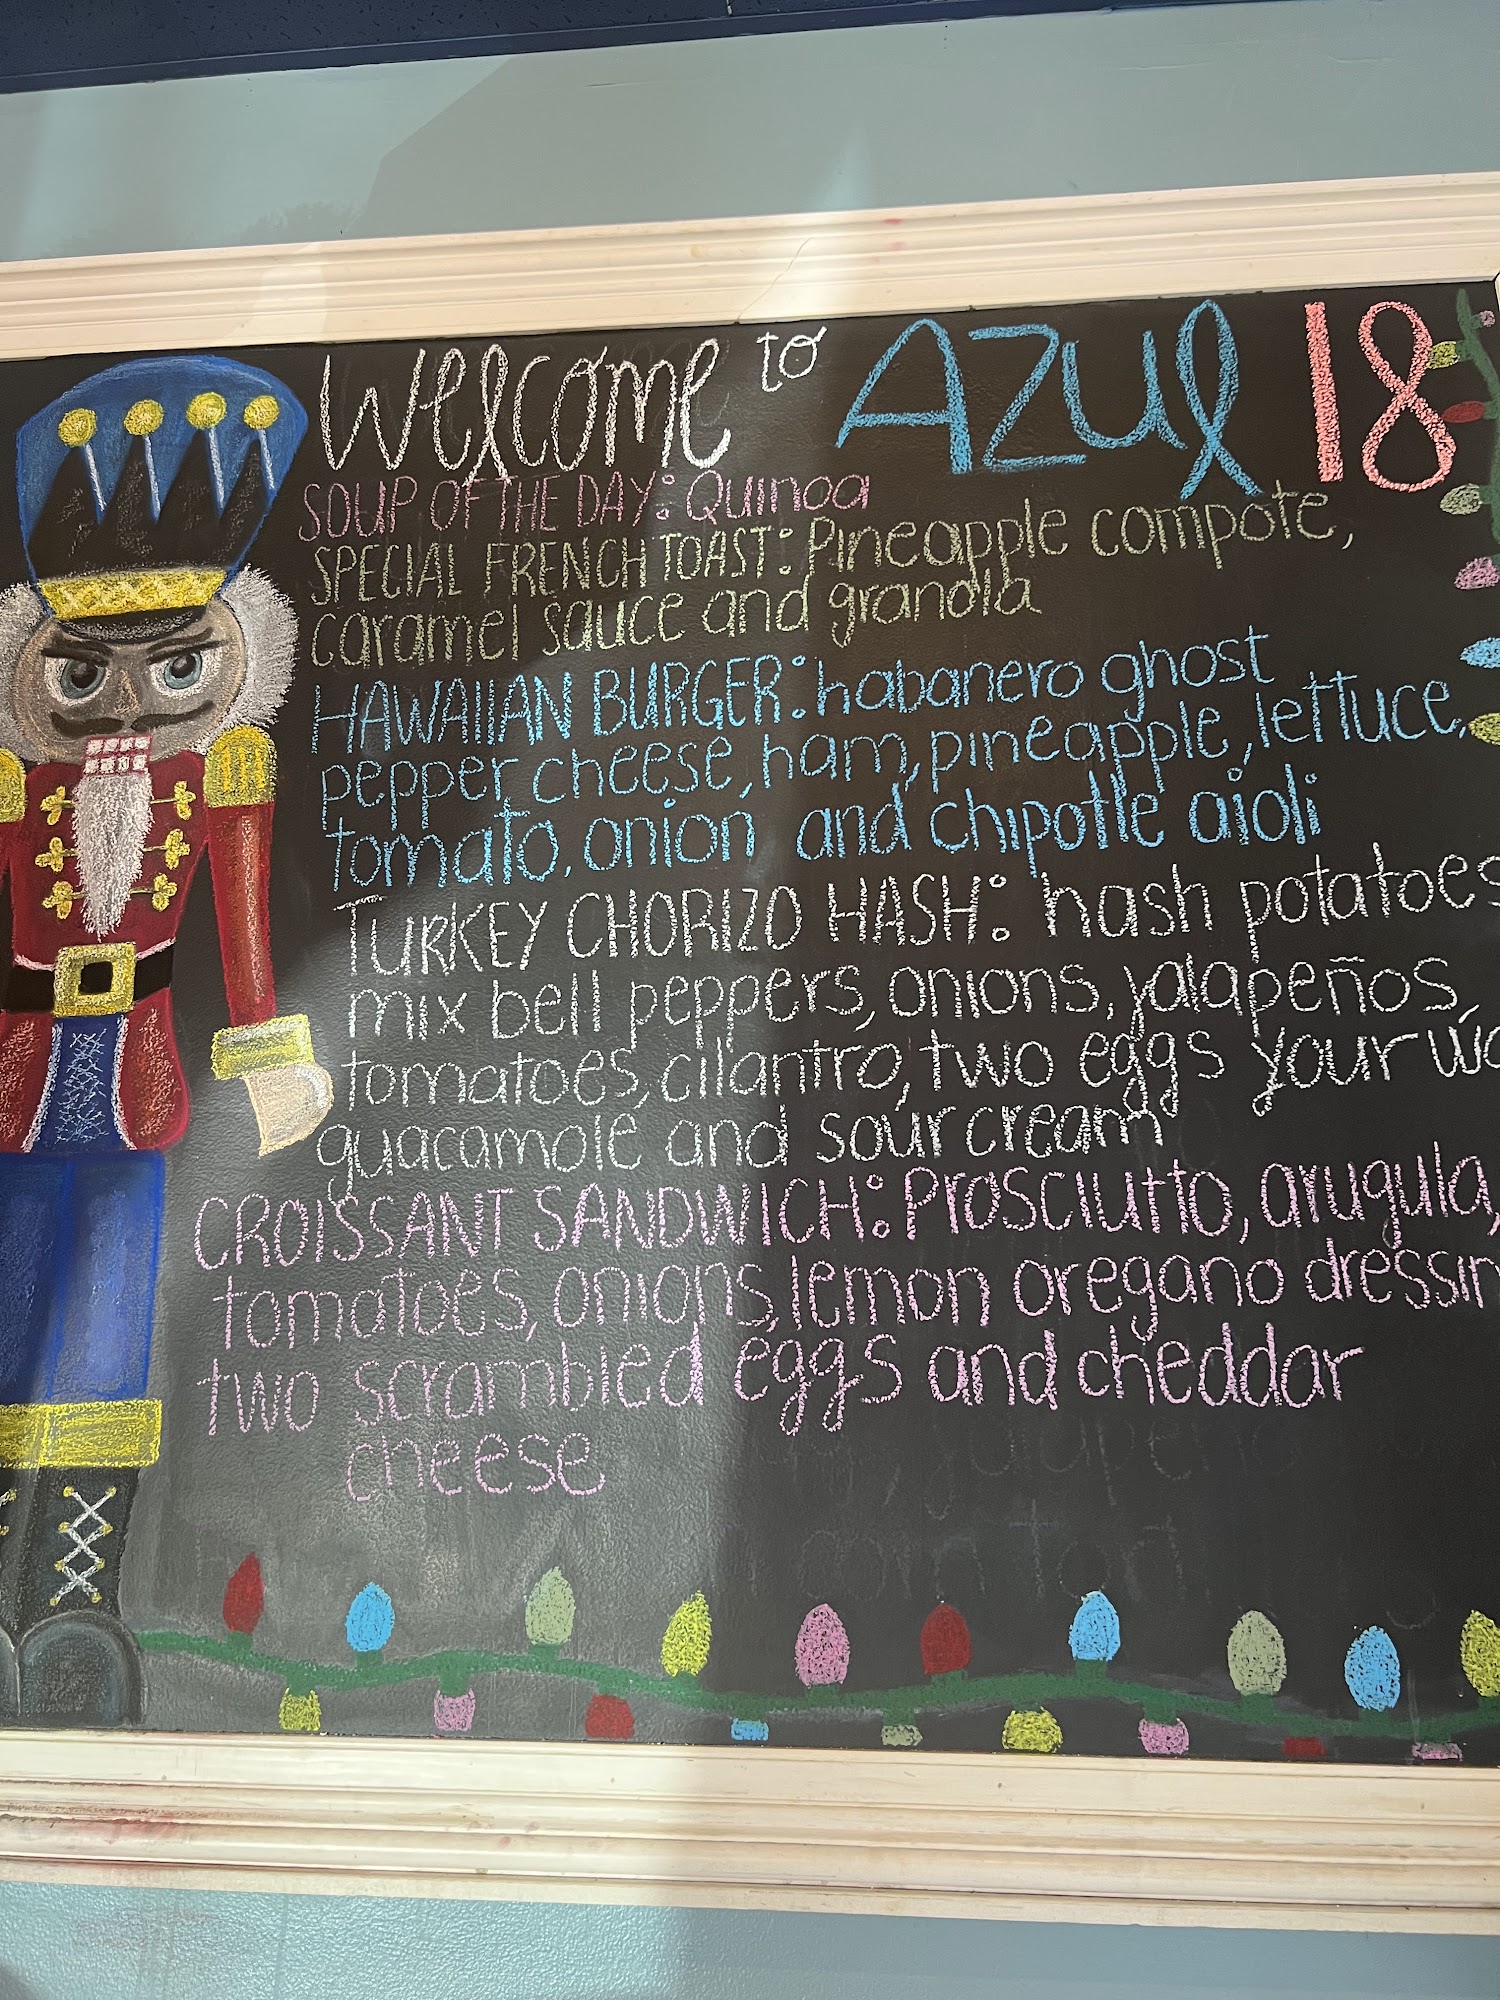 Welcome to AZUL 18
SOUP OF THE DAY: Quinoa
SPECIAL FRENCH TOAST: Pineapple compote,
caramel sauce and granola
HAWAIIAN BURGER: habanero ghost
pepper cheese, ham, pineapple, lettuce,
tomato, onion and chipotle aioli
TURKEY CHORIZO HASH: hash potatoes
mix bell peppers, onions, jalapeños,
tomatoes, cilantro, two eggs your wa
guacamole and sour cream
CROISSANT SANDWICH: Prosciutto, arugula,
tomatoes, onions, lemon oregano dressin
two scrambled eggs and cheddar
cheese